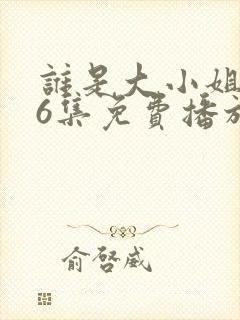 誰是大小姐
6集免費播放
俞啓威